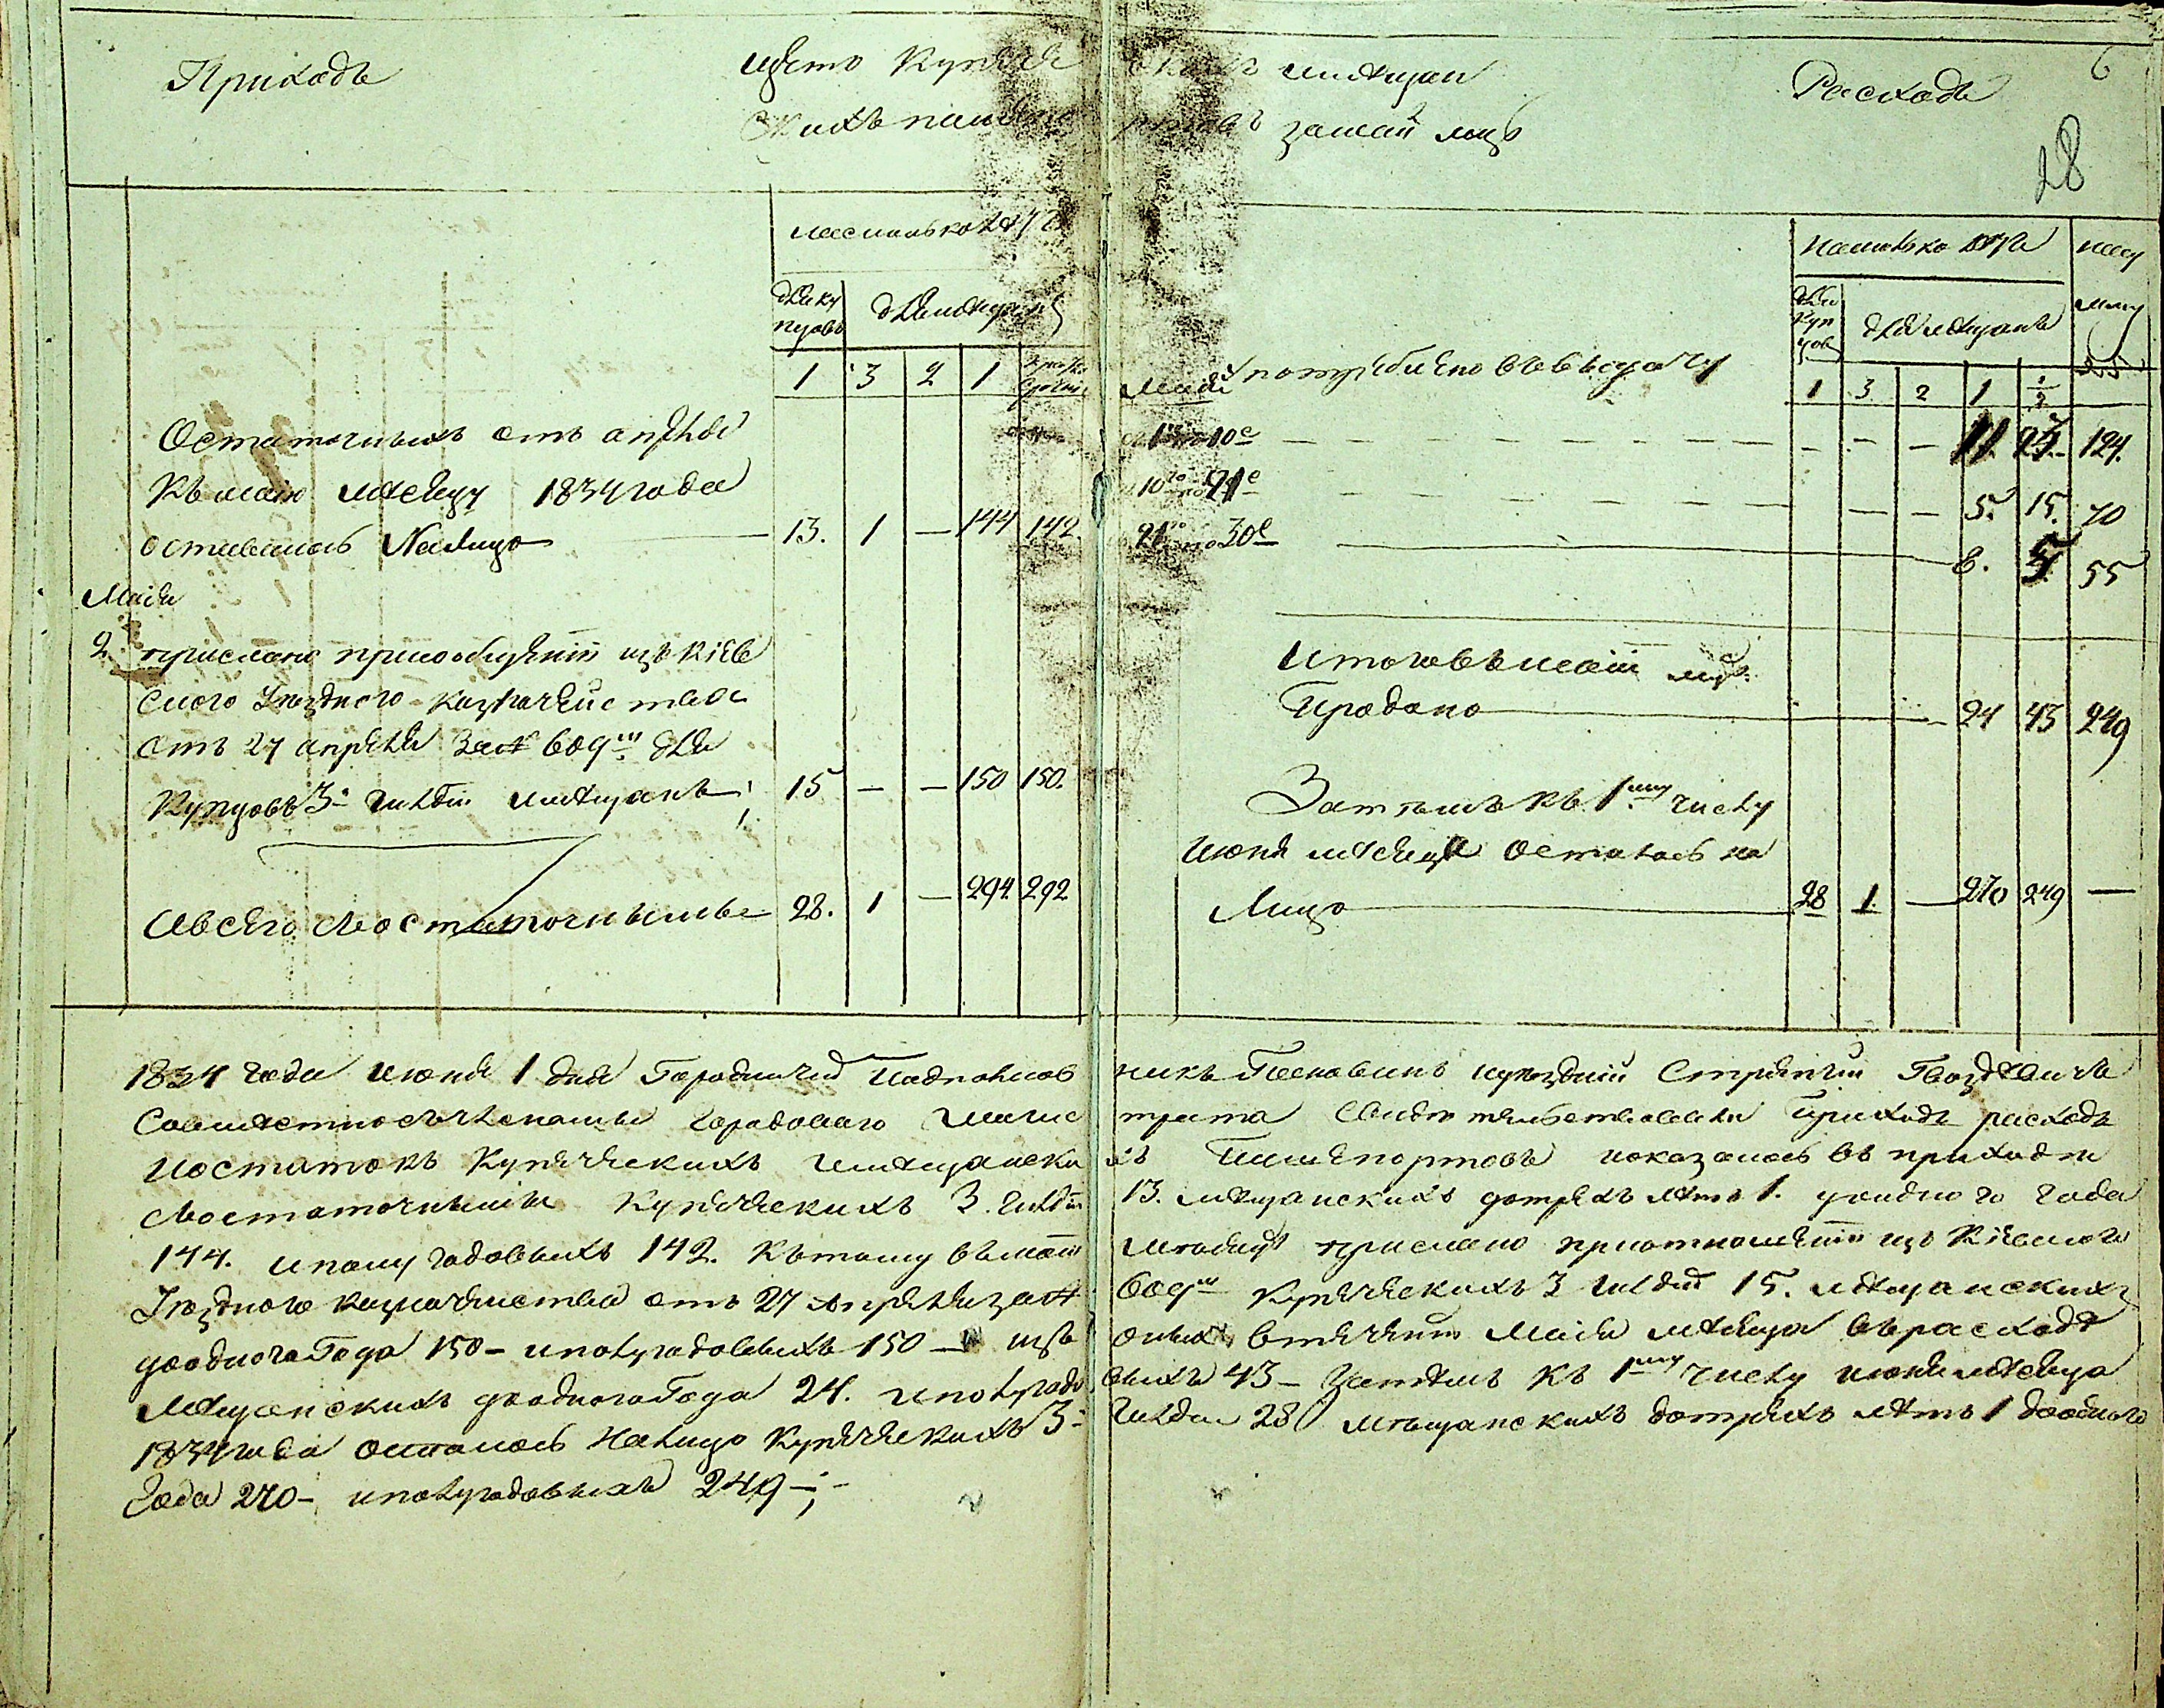 Приходъ
щето Купече
скихъ мещан
Расходъ
6
скихъ пашпо
ртовъ за май мцъ
28
на сколько лѣтъ
для ку
пцовъ
для мещанъ
1 3 2 1
Остаточныхъ отъ апреля
къ маію мѣсецу 1834 года
оставалось На лицо 13. 1 — 144 142
Маія
2 прислано присообщеніи изъ Кіев
ского Уѣзднего Казначейства
отъ 27 апреля за № 609м для
Купцовъ 3й гилдіи мещанъ 15 — — 150 150.
Ивсего соостаточными 28. 1 — 294. 292
на сколько
для
куп
цов
для мещанъ
1 3 2 1 ½
Маія употреблено въ выдачу
с 1го по 10е — — — 11. 124.
с 10го по 21е — — — 5. 15. 70
с 21го по 30е — 8. 5 55
Итого въ маіи мцѣ
Продано — 24 43 249
Затемъ къ 1му числу
июня мѣсеца осталось на
Лицо 28 1. — 270 249 —
1834 года июня 1 дня Городничій Подполков
никъ Посновинъ иуездній Стряпчій Гвоздевичь
Совместно съ членомъ городоваго Магис
трата Свидѣтельствовали Приходъ расходъ
иостатокъ Купеческихъ имещански
хъ Пашепортовъ показалось въ приходѣ
соостаточными Купеческихъ 3. гилдіи
13. мещанскихъ дотрехъ летъ 1. доодного года
144. иполу годовыхъ 142. Кътому въ маіи
месяце прислано приотношеніи изъ Кіевского
Уѣздного казначейства отъ 27 апреля за №
609м Купеческихъ 3 гилдіи 15. мещанскихъ
доодного Года 150 – иполугодовыхъ 150 – изъ
оныхъ втеченіи Маія месеца върасходѣ
Мещанскихъ доодного Года 24. иполугодо
выхъ 43 – Затемъ къ 1му числу июня месеца
1834 года осталось На лицо Купеческихъ 3й
Гилдіи 28 мещанскихъ дотрехъ летъ 1 доодного
Года 270 – иполугодовыхъ 249 –